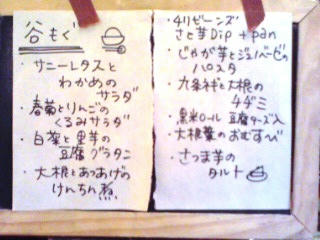 谷もぐ
・サニーレタスと
わかめの
サラダ
・春菊とりんごの
くるみサラダ
・白菜と里芋の
豆腐グラタン
・大根とあつあげの
けんちん煮
・チリビーンズ
さと芋Dip + pan
・じゃが芋とジェノベーゼの
パスタ
・九条ネギと大根の
チヂミ
・黒米ロール 豆腐チーズ入
・大根葉のおむすび
・さつま芋の
タルト